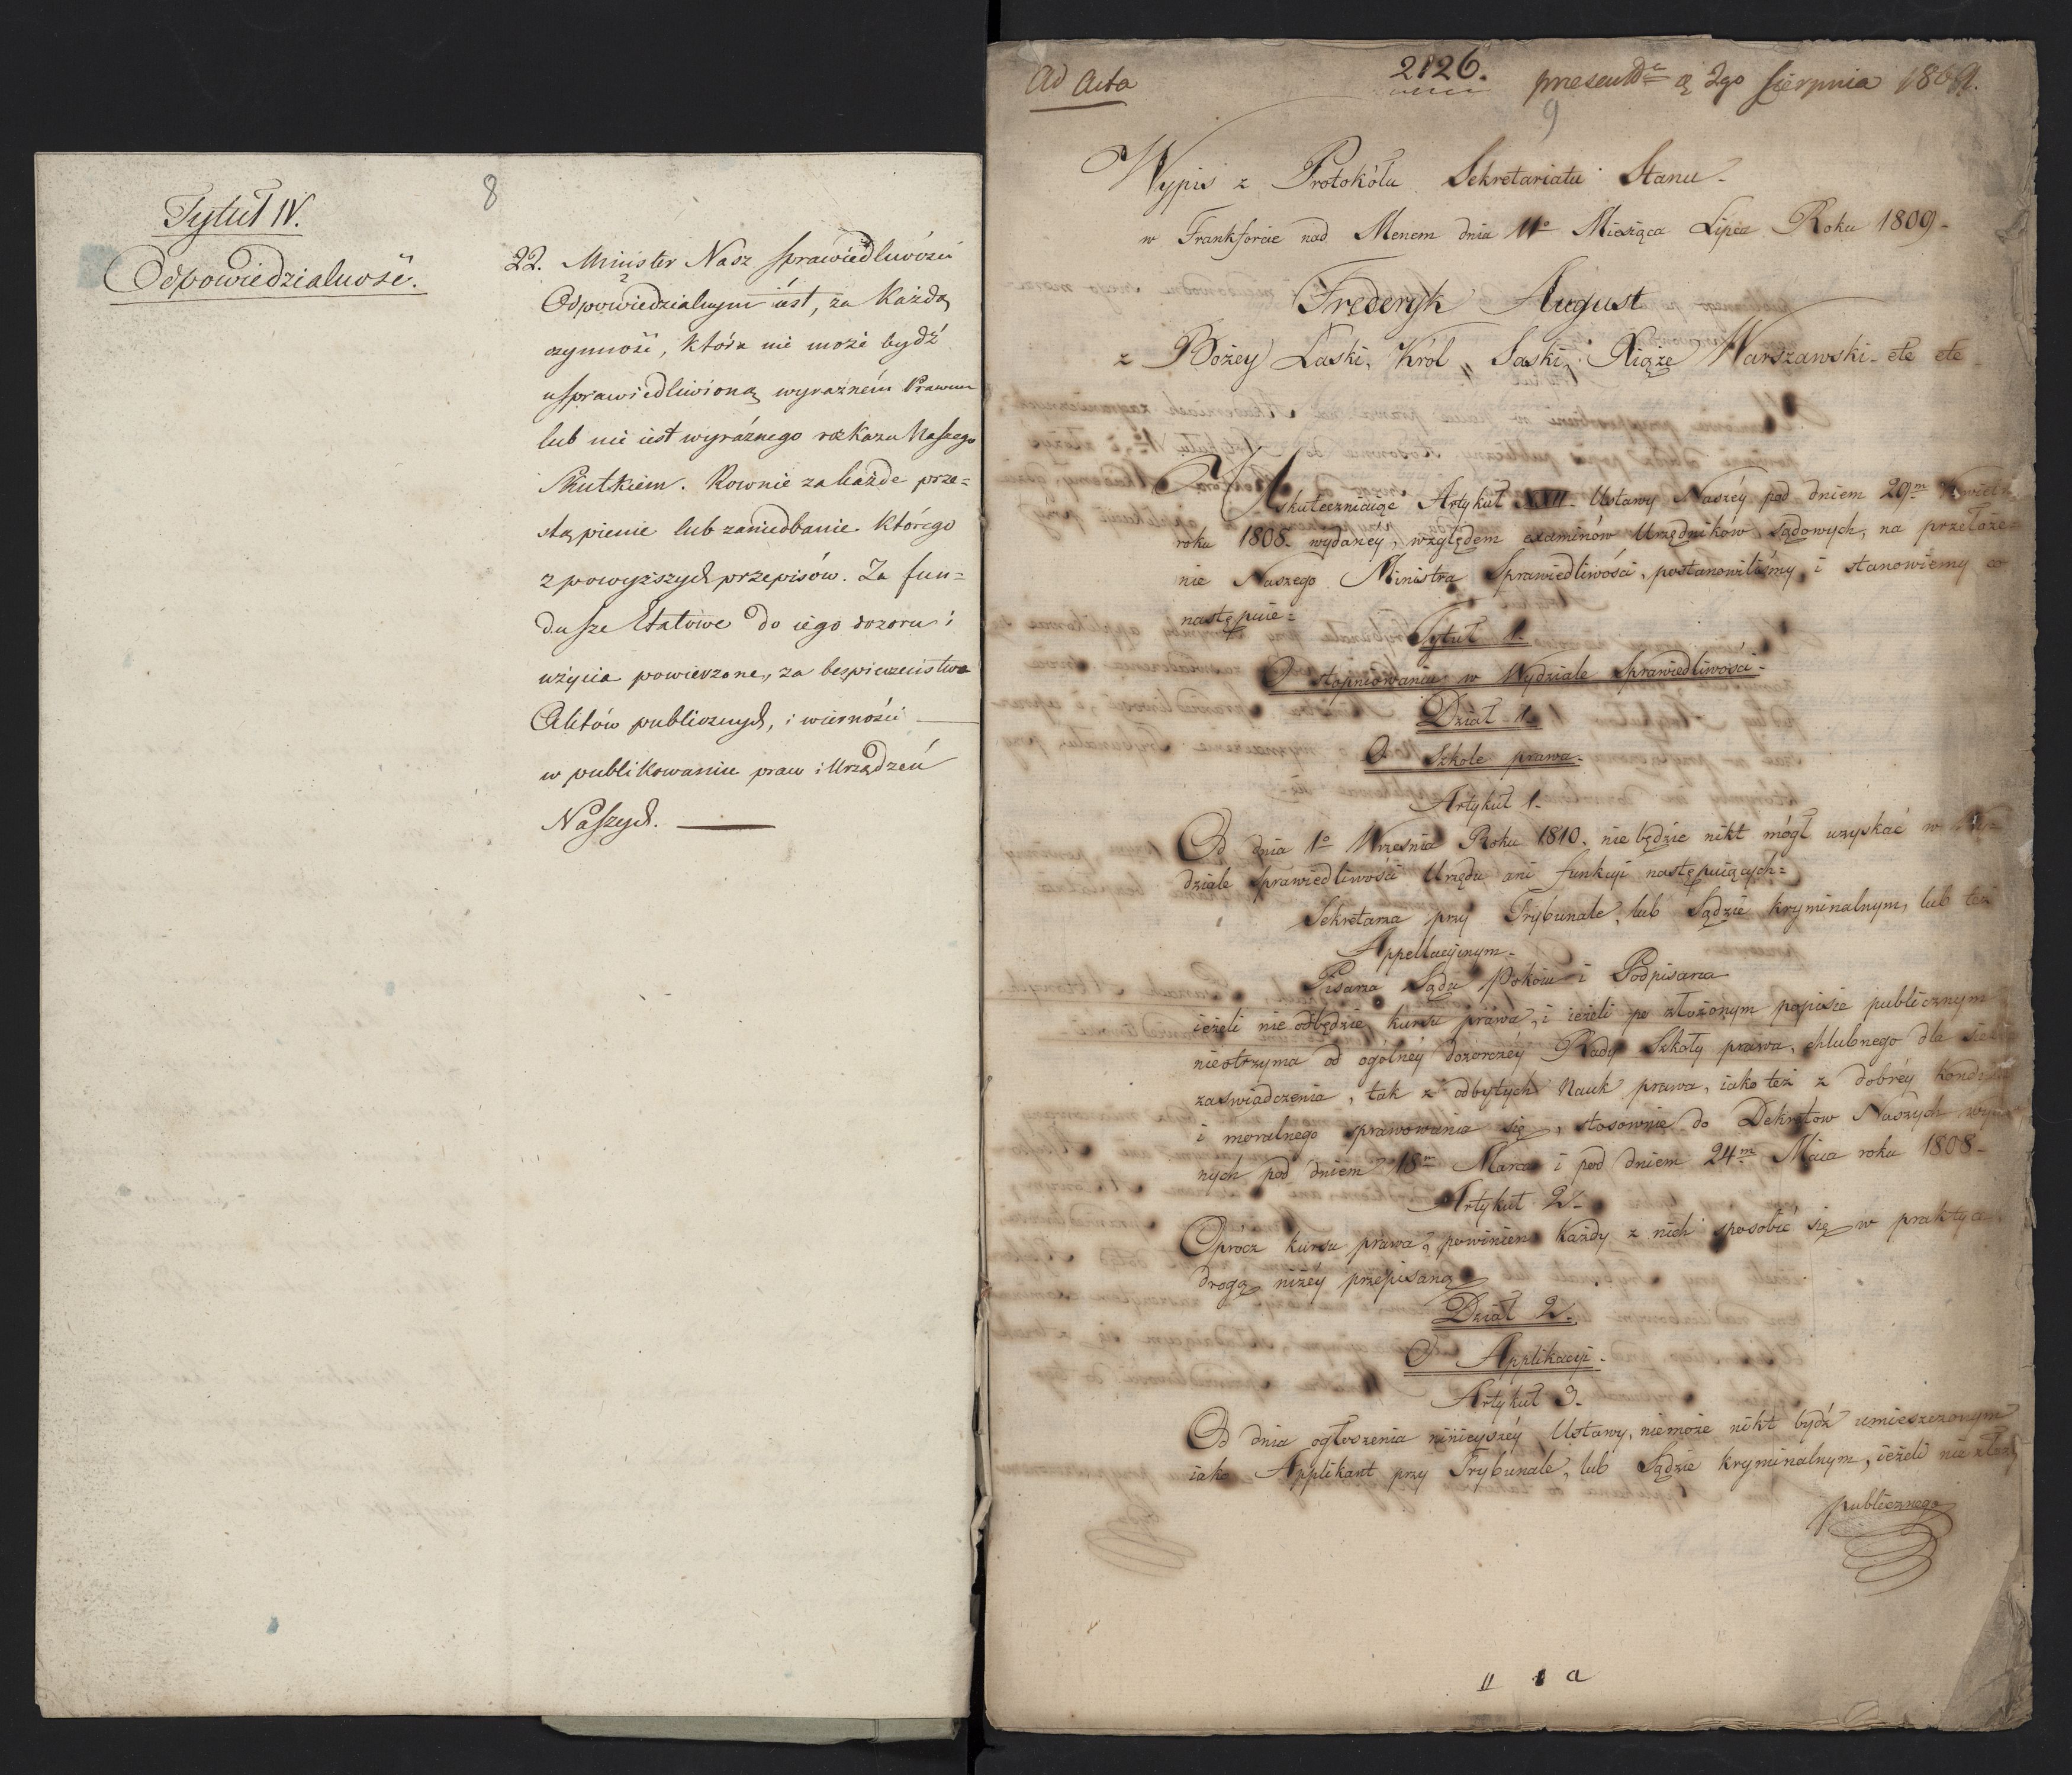 8
Tytuł IV.
Odpowiedzialność.
22. Minister Nasz sprawiedliwości
Odpowiedzialnym iest, za każdą
czynność, która nie może bydź
usprawiedliwioną wyraźnem Prawem
lub nie iest wyraźnego rozkazu Naszego
Skutkiem. Rownie za każde prze=
stąpienie lub zaniedbanie którego
z powyższych przepisów. Za fun=
dusze Etatowe do iego dozoru i
użycia powierzone, za bezpieczeństwo
Aktów publicznych, i wierności
w publikowaniu praw i Urządzeń
Naszych.
Ad Acta
2126.
9
Sierpnia 1809.
Wypis z Protokółu Sekretariatu Stanu
w Frankforcie nad Menem dnia 11o Miesiąca Lipca Roku 1809
Frederyk August
z Bożey Łaski, Król Saski, Xiąże Warszawski etc etc
Uskuteczniaiąc Artykuł XXII Ustawy Naszéy pod dniem 29m
roku 1808 wydanéy, względem examinów Urzędników Sądowych, na przełoże=
nie Naszego Ministra Sprawiedliwości, postanowiliśmy i stanowiemy co
następuie=
Tytuł 1.
O stopniowaniu w Wydziale Sprawiedliwości
Dział 1.
O Szkole prawa
Artykuł 1.
Od dnia 1o Września Roku 1810. nie będzie nikt mógł uzyskać w Wy=
dziale Sprawiedliwości Urzędu ani funkcyi następuiących=
Sekretarza przy Trybunale, lub Sądzie kryminalnym, lub też
Appellacyinym
Pisarza Sądu Pokoiu i Podpisarza
ieżeli nie odbędzie kursu prawa, i ieżeli po złożonym popisie publicznym
nieotrzyma od ogólnéy dozorczéy Rady Szkoły prawa, chlubnego dla siebie
zaświadczenia, tak z odbytych Nauk prawa, iako też z dobréy
i moralnego sprawowania się, stosownie do Dekretow Naszych wyda
nych pod dniem 18m Marca i pod dniem 24m Maia roku 1808
Artykuł 2.
Oprócz kursu prawa, powinien każdy z nich sposobić się w praktyce
drogą niżéy przepisaną
Dział 2.
O Applikacyi
Artykuł 3.
Od dnia ogłoszenia ninieyszéy Ustawy, niemoże nikt bydź umieszczonym
iako Applikant przy Trybunale, lub Sądzie kryminalnym, ieżeli nie złoży
publicznego
II 1 a